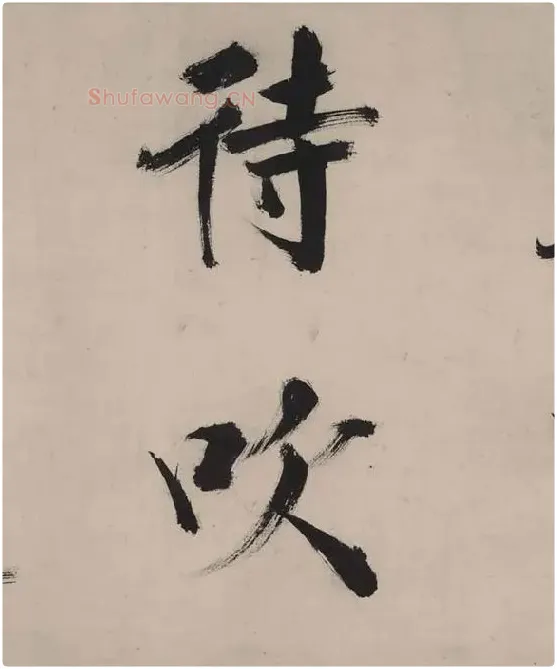 待
吹
Shufawang.CN